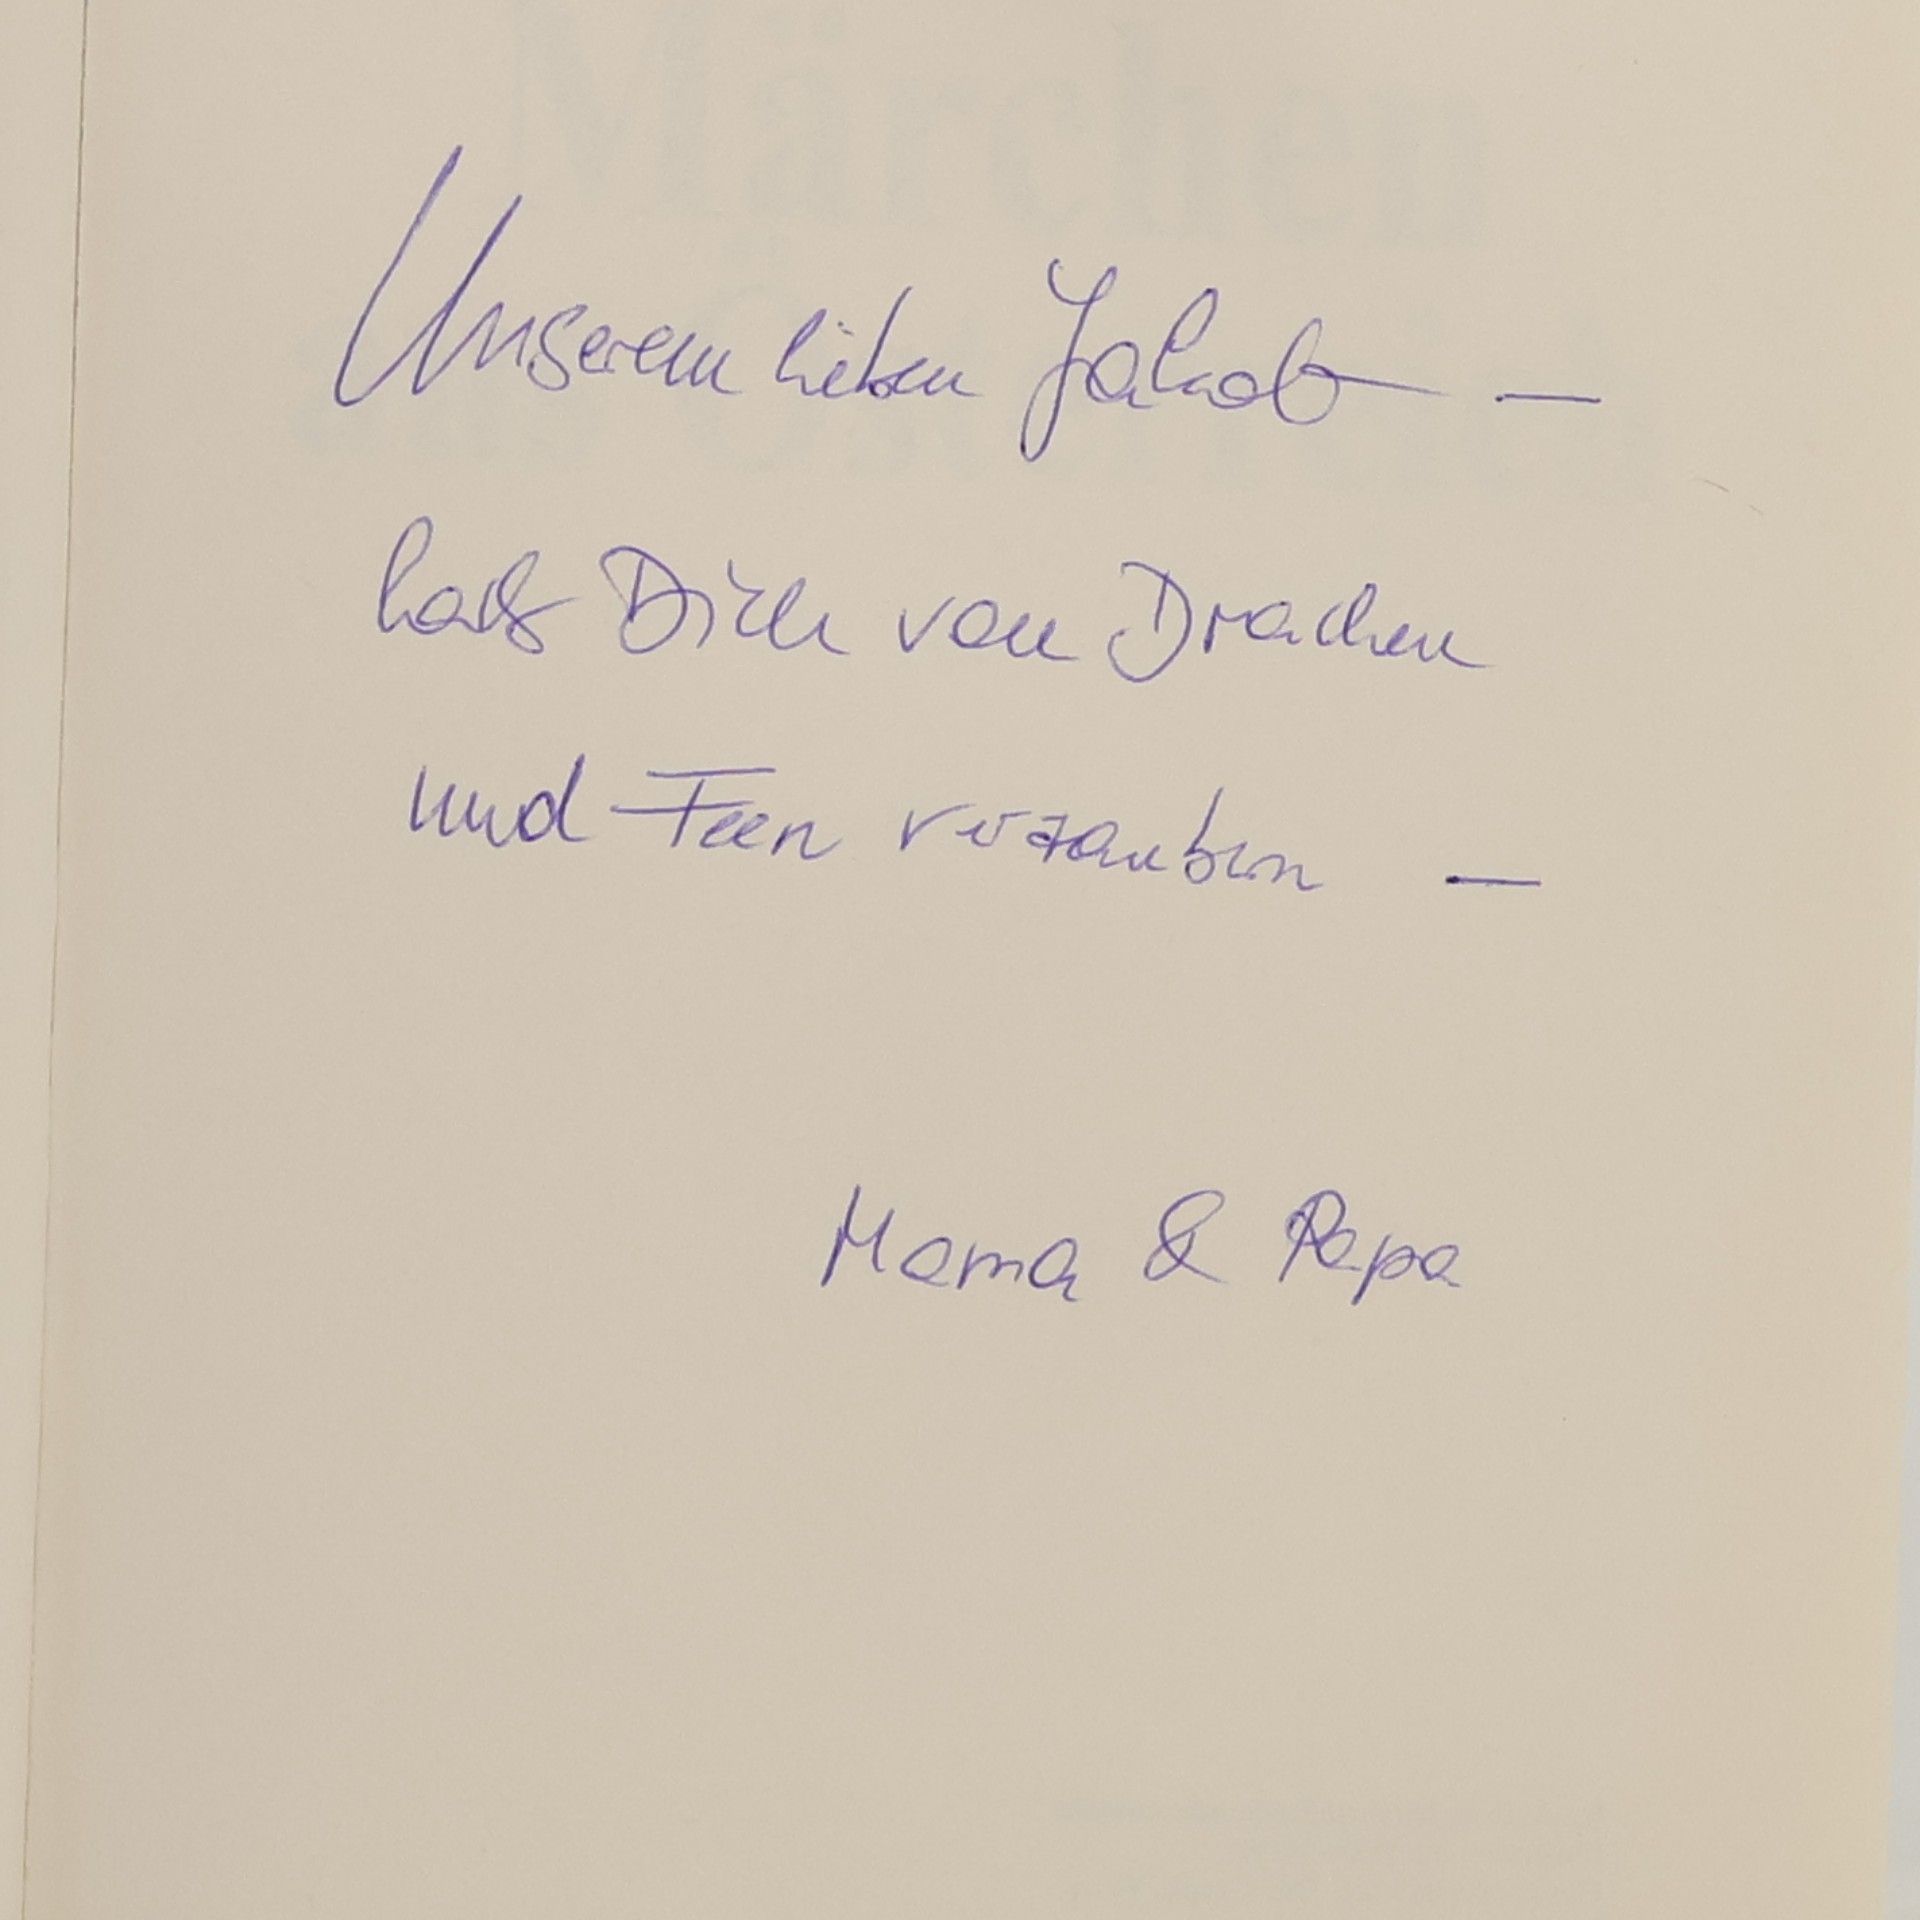 Märchen
Unserem lieben Jakob —
laß Dich von Drachen
und Feen verzaubern —
Mama & Papa